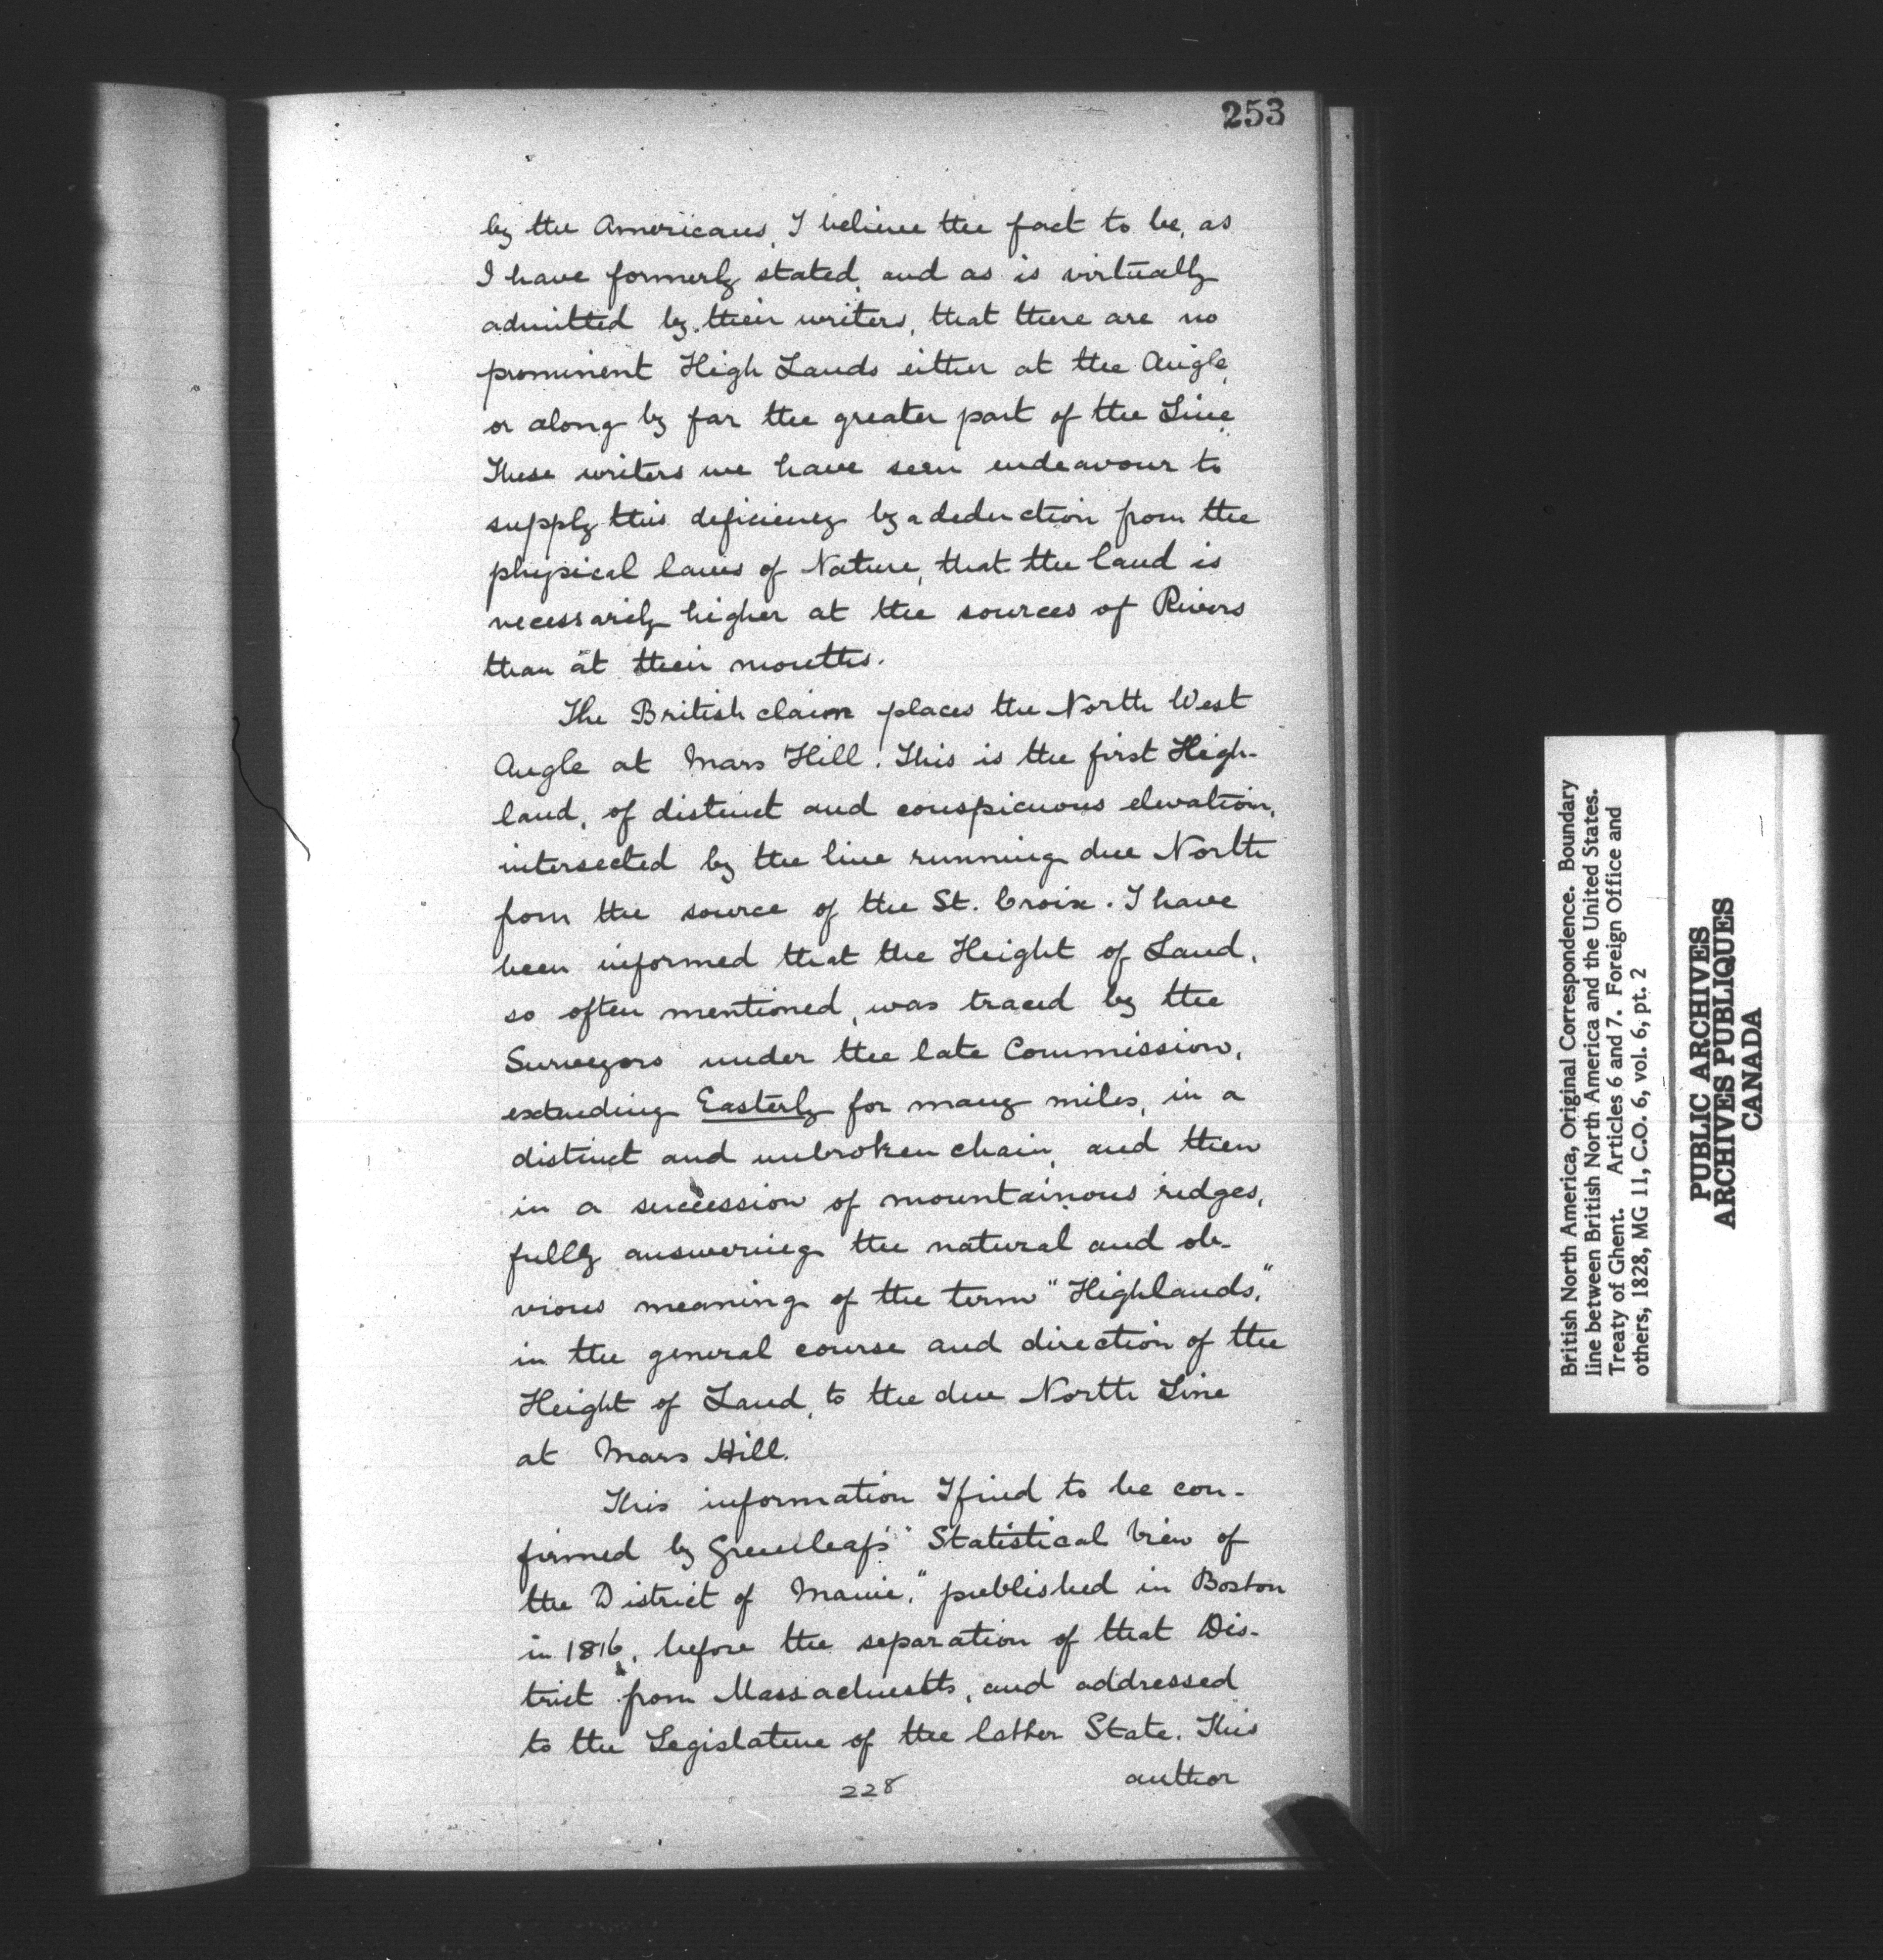 253
by the Americans, I believe the fact to be, as
I have formerly stated, and as is virtually
admitted by their writers, that there are no
prominent High Lands either at the Angle,
or along by far the greater part of the Line.
These writers we have seen endeavour to
supply this deficiency by a deduction from the
physical laws of Nature, that the land is
necessarily higher at the sources of Rivers
than at their mouths.
The British claim places the North West
Angle at Mars Hill. This is the first High-
land, of distinct and conspicuous elevation,
intersected by the line running due North
from the source of the St. Croix. I have
been informed that the Height of Land,
so often mentioned, was traced by the
Surveyors under the late Commission,
extending Easterly for many miles, in a
distinct and unbroken chain, and then
in a succession of mountainous ridges,
fully answering the natural and ob-
vious meaning of the term "Highlands,"
in the general course and direction of the
Height of Land, to the due North Line
at Mars Hill.
This information I find to be con-
firmed by Greenleaf's "Statistical View of
the District of Maine," published in Boston
in 1816, before the separation of that Dis-
trict from Massachusetts, and addressed
to the Legislature of the latter State. This
author
228
British North America, Original Correspondence. Boundary
line between British North America and the United States.
Treaty of Ghent. Articles 6 and 7. Foreign Office and
others, 1828, MG 11, C.O. 6, vol. 6, pt. 2
PUBLIC ARCHIVES
ARCHIVES PUBLIQUES
CANADA